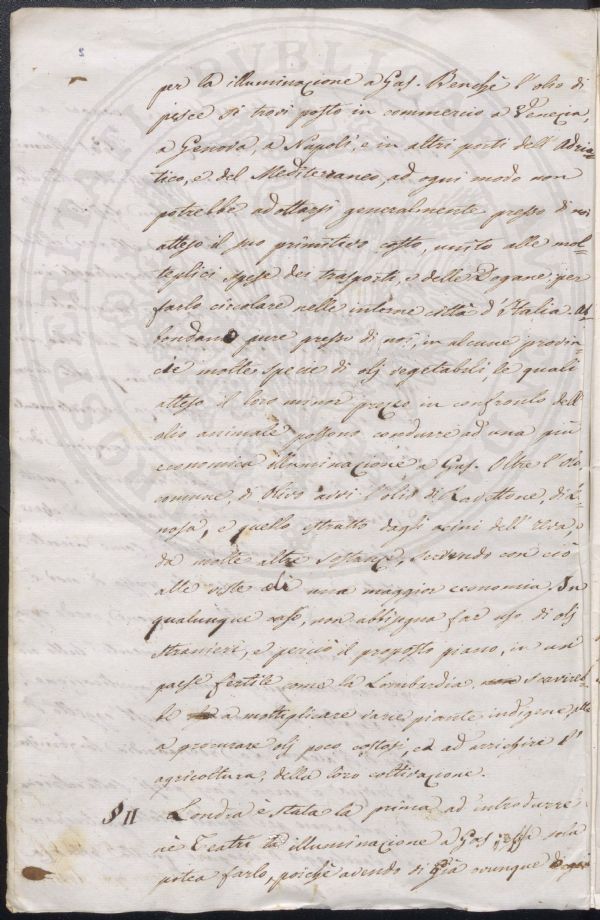 2
per la illuminazione a Gas. Benchè l'olio di
pesce si trovi posto in commercio a Venezia,
a Genova, a Napoli, e in altri porti dell'Adria=
tico, e del Mediterraneo, ad ogni modo non
potrebbe adottarsi generalmente presso di noi
atteso il suo primitivo costo, unito alle mol=
teplici spese dei trasporti, e delle Dogane per
farlo circolare nelle interne città d'Italia. Ab
bondano pure presso di noi, in alcune provin=
cie molte specie di olj vegetabili, le quali
atteso il loro minor prezzo in confronto dell'
olio animale possono condurre ad una più
economica illuminazione a Gas. Oltre l'olio
comune, di Olivo avvi l'olio di Ravettone, di Li
nosa, e quello estratto dagli acini dell'Uva, e
da molte altre sostanze, servendo con ciò
alle viste di una maggior economia. In
qualunque caso, non abbisogna far uso di olj
stranieri, e perciò il proposto piano, in un
paese fertile come la Lombardia, servireb=
be a moltiplicare varie piante indigene, atte
a procurare olj poco costosi, ed ad arrichire l'
agricoltura, della loro coltivazione.
§ II Londra è stata la prima ad introdurre
nè Teatri la illuminazione a Gas; essa sola
potea farlo, poichè avendo di già ovunque